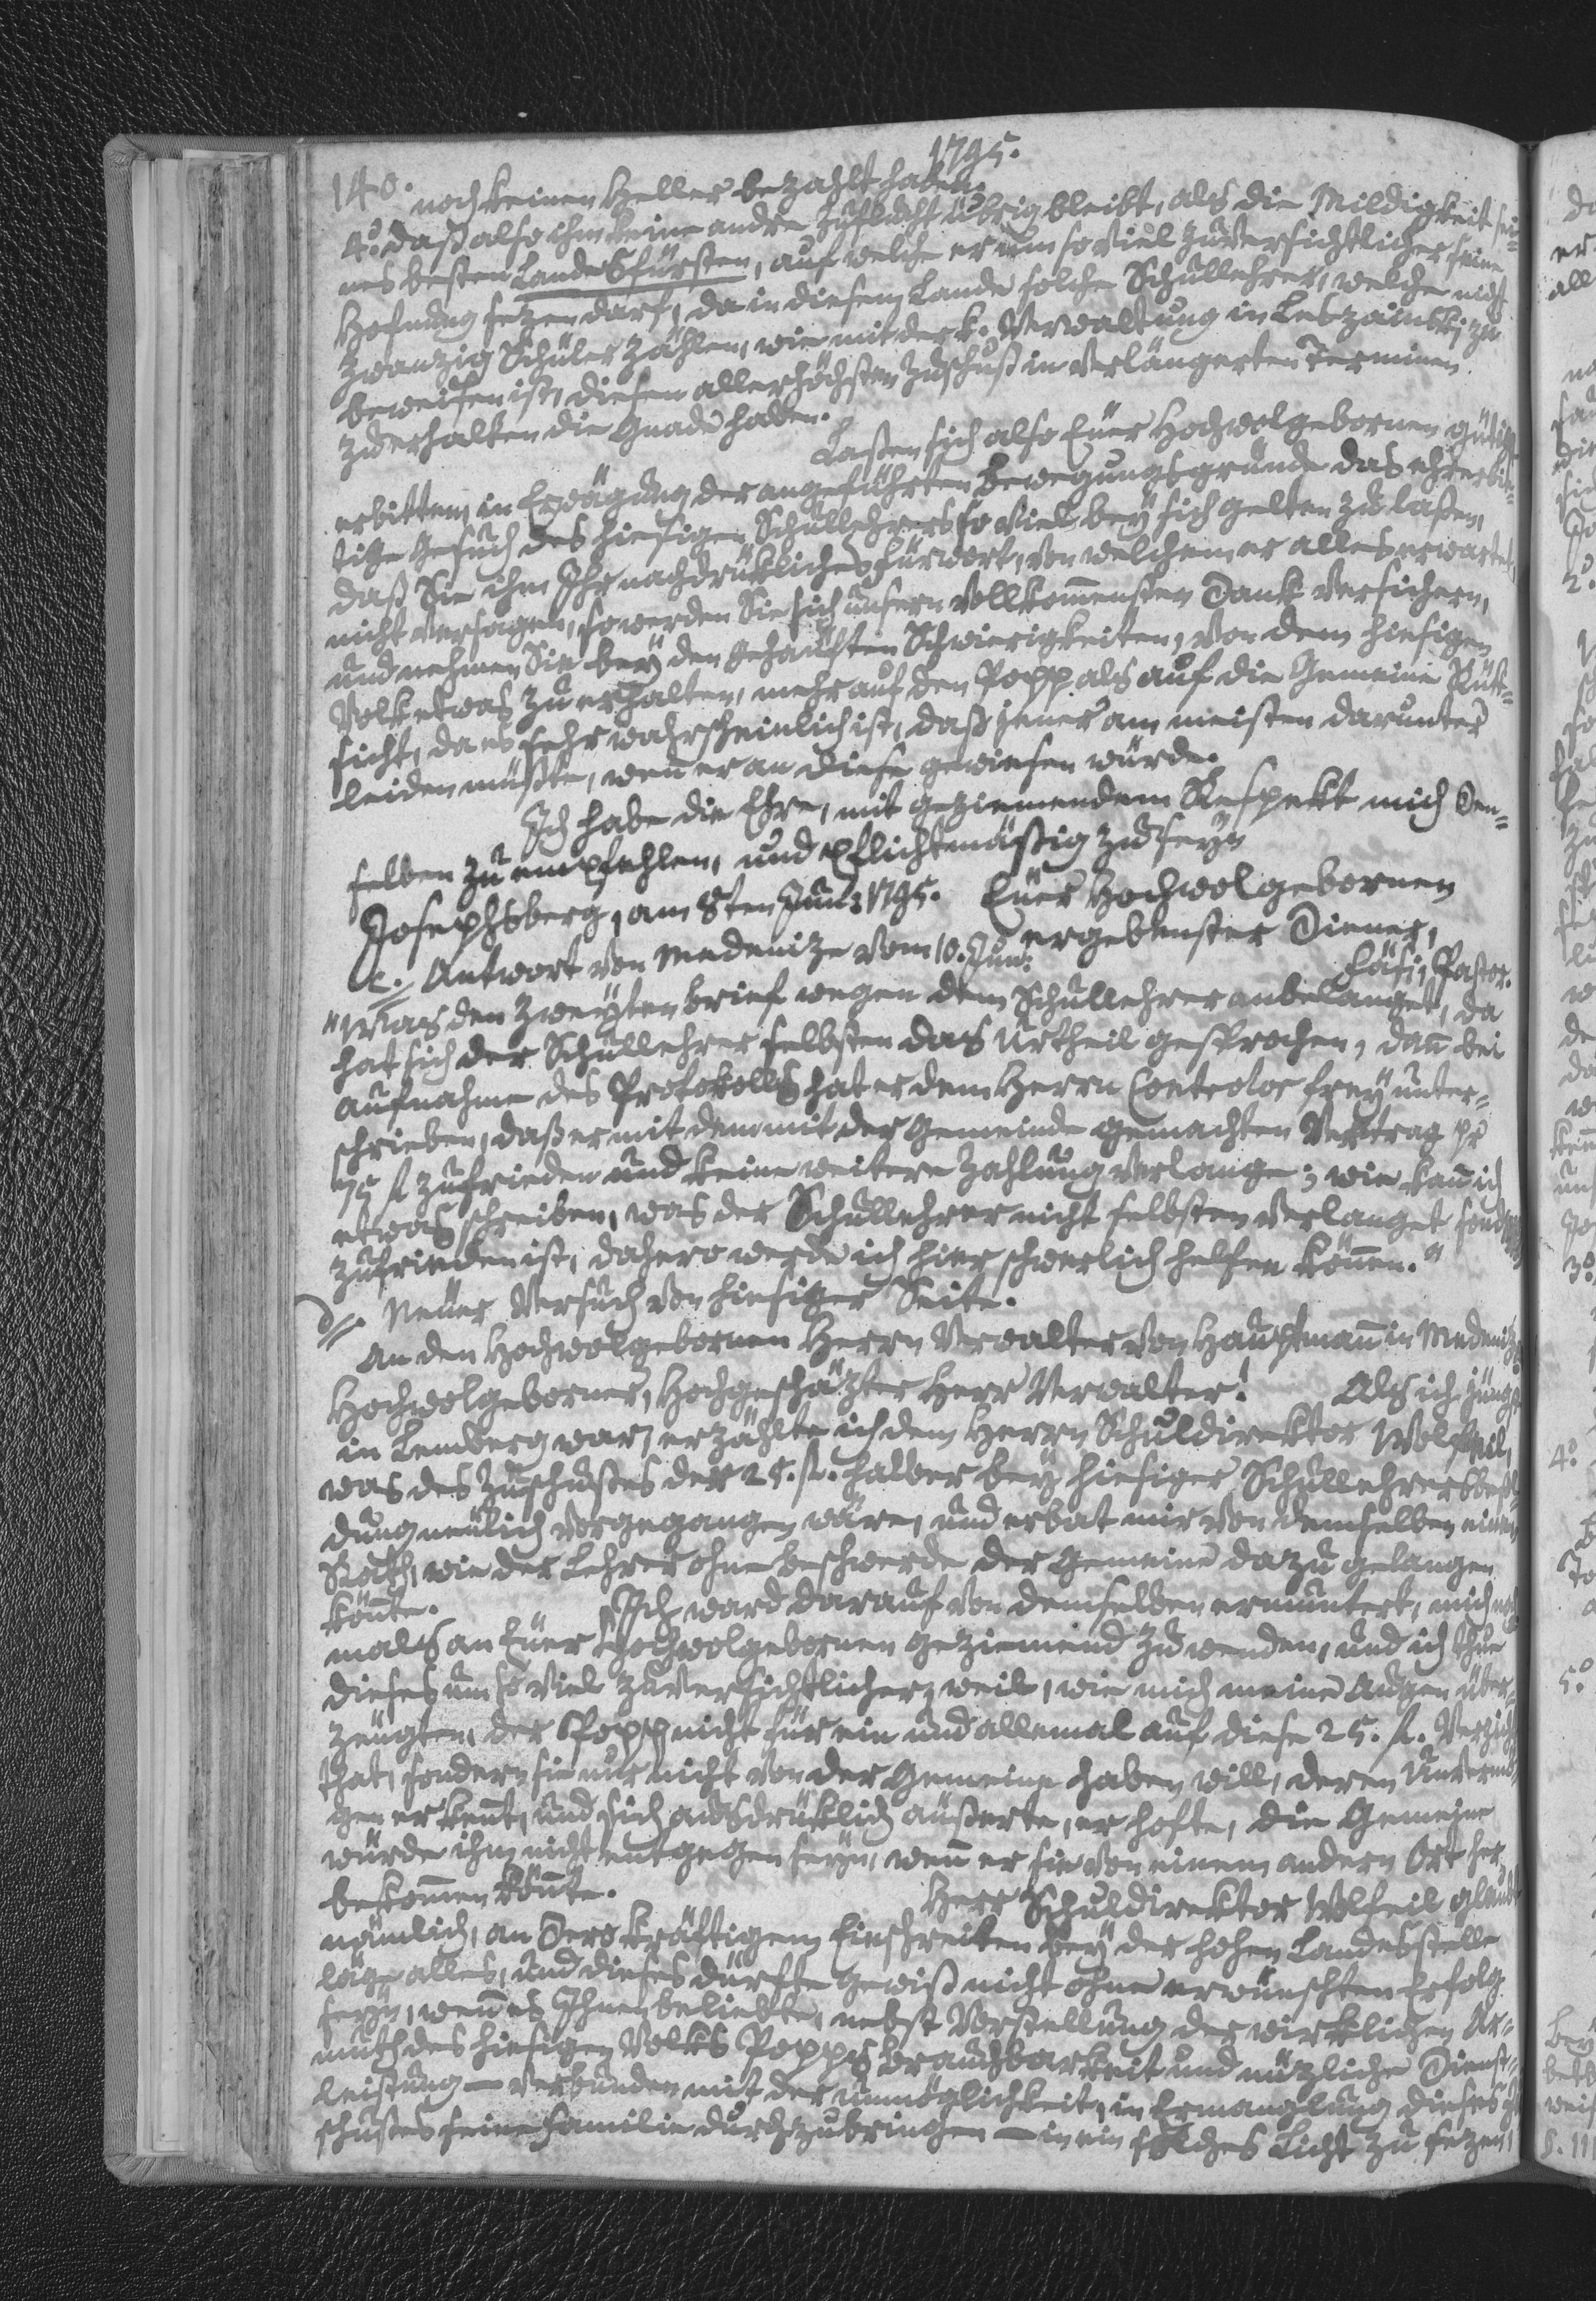 140. 1795.
noch keinen Heller bezahlt haben.
4.° daß also ihm keine andre Zuflucht übrig bleibt, als die Mildigkeit sei-
nes besten Landesfürsten, auf welche er um so viel zuversichtlicher seine
Hofnung sezen darf, da in diesem Lande solche Schullehrer, welche nicht
zwanzig Schüler zählen, wie mit der k. Verwaltung in zu
beweisen ist, diesen allerhöchsten Zuschuß in verlängerten Terminen
zu erhalten die Gnade haben.
Laßen sich also Euer Hochwolgebornen gütigst
erbitten, in Erwägung der angeführten Bewegungsgründe das ehrerbie-
tige Gesuch des hiesigen Schullehrers so viel bey sich gelten zu laßen,
daß Sie ihm Ihr nachdrükliches Fürwort, von welchem er alles erwartet,
nicht versagen, so werden Sie sich unsern vollkom̄ensten Dank versichern,
und nehmen Sie bey den gehäuften Schwierigkeiten, von dem hiesigen
Volk etwas zu erhalten, mehr auf den Popp als auf die Gemeine Rük-
sicht, da es sehr wahrscheinlich ist, daß jener am meisten darunter
leiden müßte, wen̄ er an diese gewiesen würde.
Ich habe die Ehre, mit geziemendem Respekt mich Den-
selben zu empfehlen, und pflichtmäßig zu seyn
Josephsberg, am 8ten Jun: 1795. Euer Hochwolgebornen
ergebenster Diener,
c. Antwort von Medenize vom 10. Jun: Fäsi, Pastor.
"Was den zweyten Brief wegen dem Schullehrer anbelanget, da
hat sich der Schullehrer selbsten das Urtheil gesprochen, dan̄ bei
Aufnahme des Protokolls hat er dem Herrn Controlor frey unter-
schrieben, daß er mit dem mit der Gemeinde gemachten Vertrag pr
75 f zufrieden und keine weitere Zahlung verlange; wie kan̄ ich
etwas schreiben, was der Schullehrer nicht selbsten verlanget sondern
zufrieden ist, dahero werde ich hier schwerlich helfen kön̄en."
d. Neuer Versuch von hiesiger Seite.
An den Hochwolgebornen Herrn Verwalter von Hauptman̄ in Medenize
Hochwolgeborner, Hochgeschäzter Herr Verwalter! Als ich jüngst
in Lemberg war, erzählte ich dem Herrn Schuldirektor Wolfeil,
was des Zuschußes der 25. fl. halber bey hiesiger Schullehrersbesol-
dung neulich vorgegangen wäre, und erbat mir von demselben einen
Rath, wie der Lehrer ohne Beschwerde der Gemeine dazu gelangen
kön̄te. Ich ward darauf von demselben ermuntert, mich noch
mals an Euer Hochwolgebornen geziemend zu wenden, und ich thue
dieses um so viel zuversichtlicher, weil, wie mich meine Augen über-
zeugten, der Popp nicht für ein und allemal auf diese 25. fl. Verzicht
that, sondern sie nur nicht von der Gemeine haben will, deren Unvermö-
gen er ken̄t, und sich ausdrüklich äußerte, er hofte, die Gemeine
würde ihm nicht entgegen seyn, wen̄ er sie von einem andern Ort her
bekom̄en kön̄te. Herr Schuldirektor Wolfeil glaubt
nämlich, an Dero kräftigem Einschreiten bey der hohen Landesstelle
läge alles, und dieses dürfte gewiß nicht ohne erwünschten Erfolg
seyn, wen̄ es Ihnen beliebte, nebst Vorstellung der wirklichen Ar-
muth des hiesigen Volks Popps Brauchbarkeit und nüzliche Dienst-
leistung — verbunden mit der Unmöglichkeit, in Ermanglung dieses Zu-
schußes seine Familie durchzubringen — in ein solches Licht zu sezen,